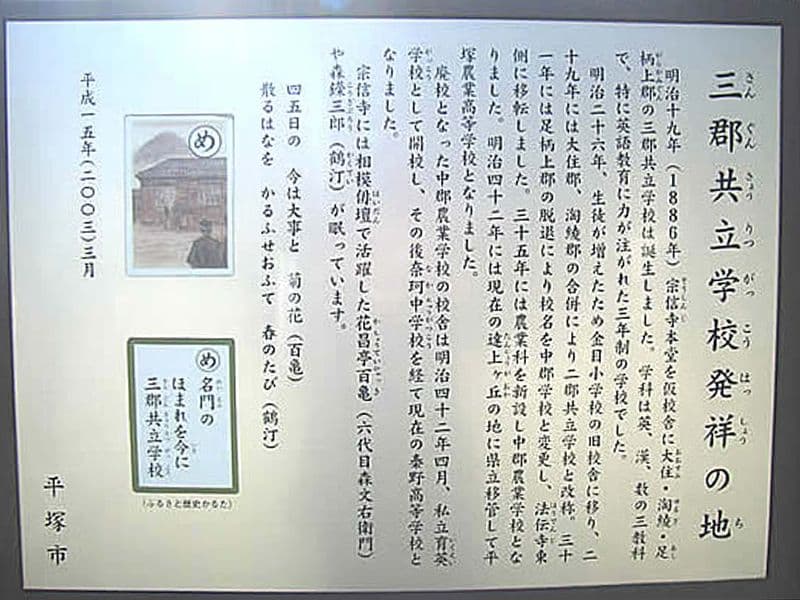 三郡共立学校発祥の地
さん ぐん きょう りつ がっ こう はっ しょう ち
明治十九年(1886年)宗信寺本堂を仮校舎に大住・淘綾・足
柄上郡の三郡共立学校は誕生しました。学科は英、漢、数の三教科
で、特に英語教育に力が注がれた三年制の学校でした。
明治二十六年、生徒が増えたため金目小学校の旧校舎に移り、二
十九年には大住郡、淘綾郡の合併により二郡共立学校と改称。三十
一年には足柄上郡の脱退により校名を中郡学校と変更し、法伝寺東
側に移転しました。三十五年には農業科を新設し中郡農業学校とな
りました。明治四十二年には現在の達上ヶ丘の地に県立移管して平
塚農業高等学校となりました。
廃校となった中郡農業学校の校舎は明治四十二年四月、私立育英
学校として開校し、その後奈珂中学校を経て現在の秦野高等学校と
なりました。
宗信寺には相模俳壇で活躍した花昌亭百亀(六代目森文右衛門)
や森鑅三郎(鶴汀)が眠っています。
四五日の 今は大事と 菊の花(百亀)
散るはなを かるふせおふて 春のたび(鶴汀)
め
め
名門の
ほまれを今に
三郡共立学校
(ふるさと歴史かるた)
平成一五年(二〇〇三)三月
平塚市